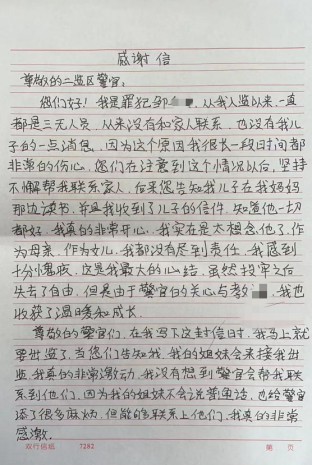 感谢信
尊敬的二监区警官:
您们好!我是罪犯邹 从我入监以来,一直
都是三无人员,从来没有和家人联系,也没有我儿
子的一点消息,因为这个原因我很长一段时间都
非常的伤心,您们在注意到这个情况以后,坚持
不懈帮我联系家人,后来您告知我儿子在我妈妈
那边读书,并且我收到了儿子的信件,知道他一切
都好,我真的非常开心,我实在是太想念他了,作
为母亲,作为女儿,我都没有尽到责任,我感到
十分愧疚,这是我最大的心结,虽然投牢之后
失去了自由,但是由于警官的关心与教 我也
收获了温暖和成长。
尊敬的警官们,在我写下这封信时,我马上就
要出监了,当您们告知我,我的姐妹会来接我出
监,我真的非常激动,我没有想到警官会帮我联
系到他们,因为我的姐妹不会说普通话,也给警官
添了很多麻烦,但能够联系上他们,我真的非常
感激。
双行信纸 7282 第 页